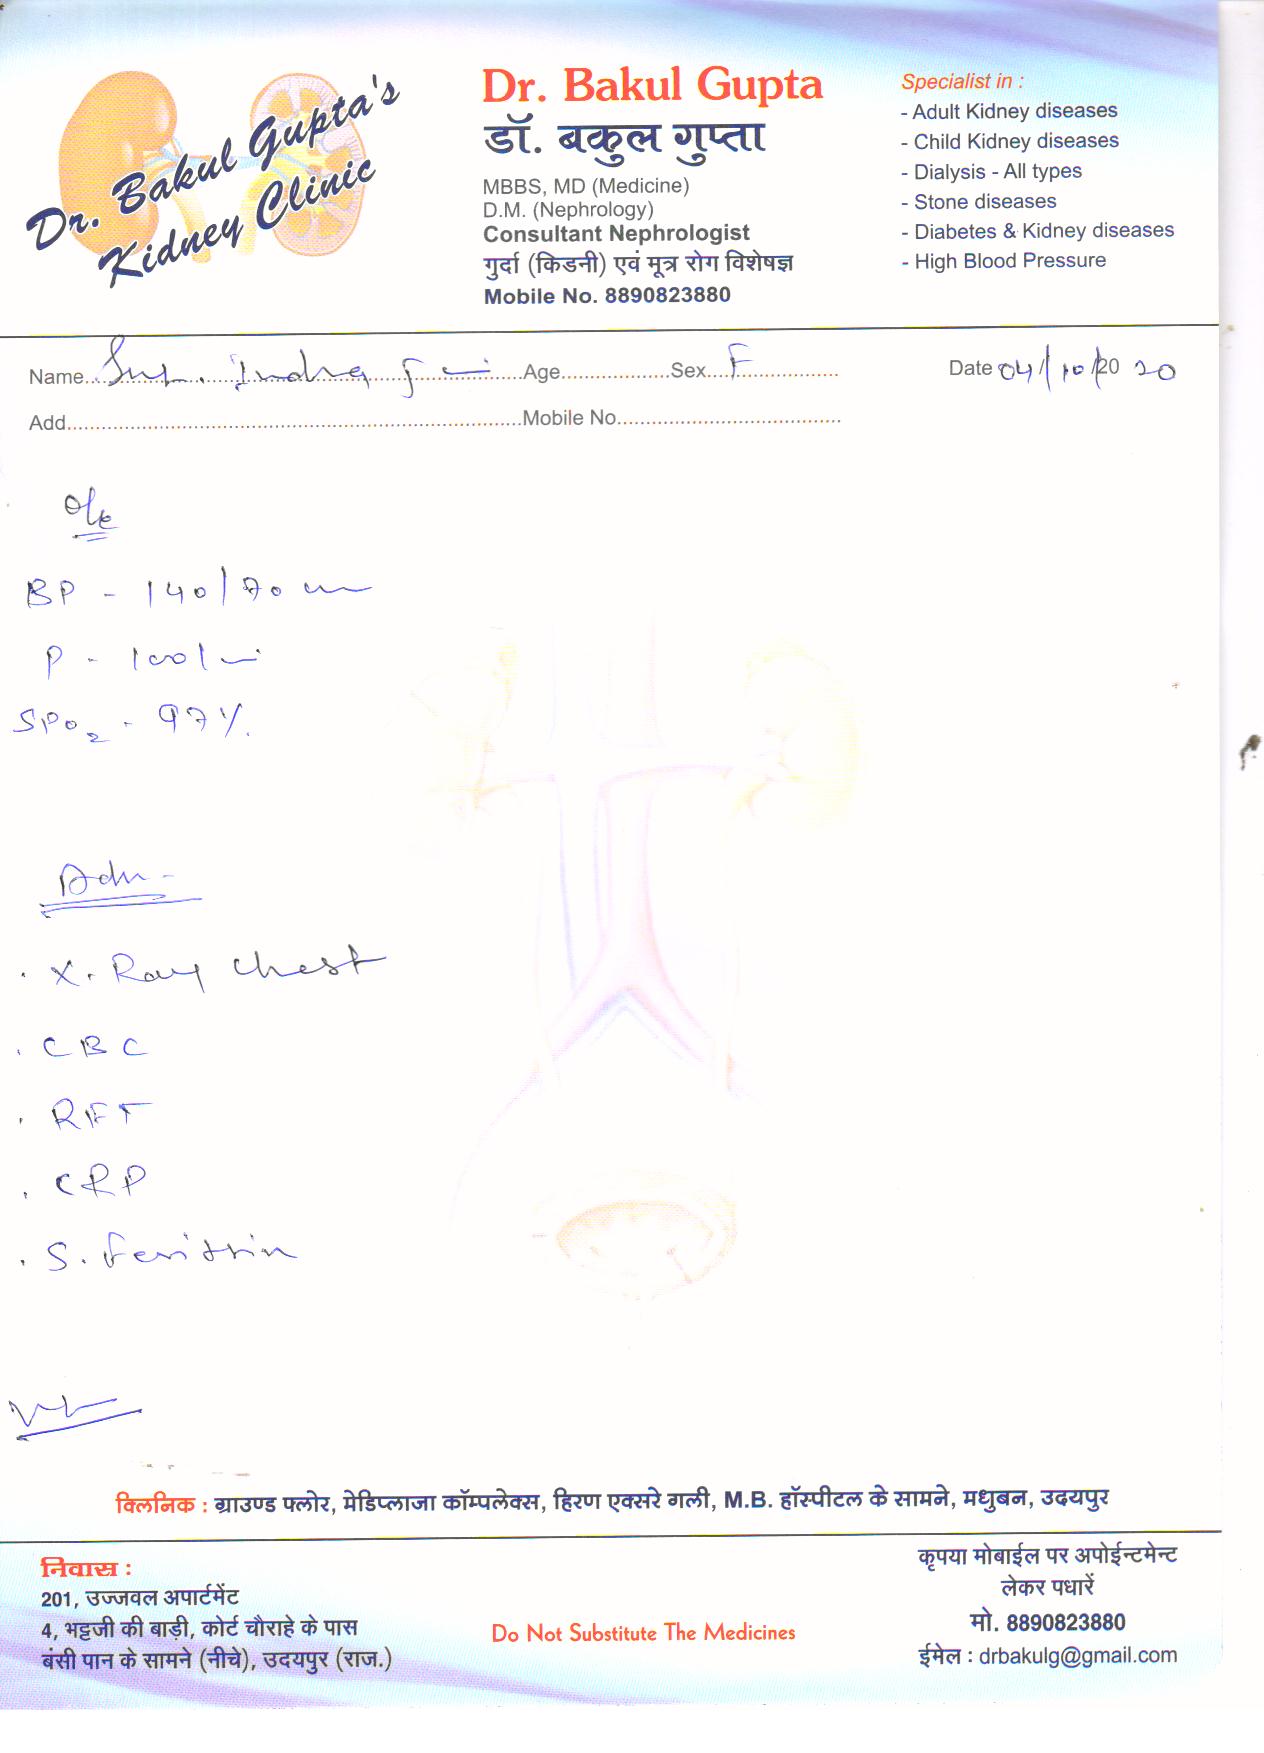 Dr. Bakul Gupta's
Kidney Clinic
Dr. Bakul Gupta
डॉ. बकुल गुप्ता
MBBS, MD (Medicine)
D.M. (Nephrology)
Consultant Nephrologist
गुर्दा (किडनी) एवं मूत्र रोग विशेषज्ञ
Mobile No. 8890823880
Specialist in :
- Adult Kidney diseases
- Child Kidney diseases
- Dialysis - All types
- Stone diseases
- Diabetes & Kidney diseases
- High Blood Pressure
Name Indra Age Sex F Date 04/10/20 20
Add. Mobile No.
O/E
BP - 140/70
P - 100/
SPO2 - 97%.
Adv -
. X. Ray Chest
. CBC
. RFT
. CRP
. S. Ferittrin
क्लिनिक : ग्राउण्ड फ्लोर, मेडिप्लाजा कॉम्पलेक्स, हिरण एक्सरे गली, M.B. हॉस्पीटल के सामने, मधुबन, उदयपुर
निवास :
201, उज्जवल अपार्टमेंट
4, भट्टजी की बाड़ी, कोर्ट चौराहे के पास
बंसी पान के सामने (नीचे), उदयपुर (राज.)
Do Not Substitute The Medicines
कृपया मोबाईल पर अपोईन्टमेन्ट
लेकर पधारें
मो. 8890823880
ईमेल : drbakulg@gmail.com